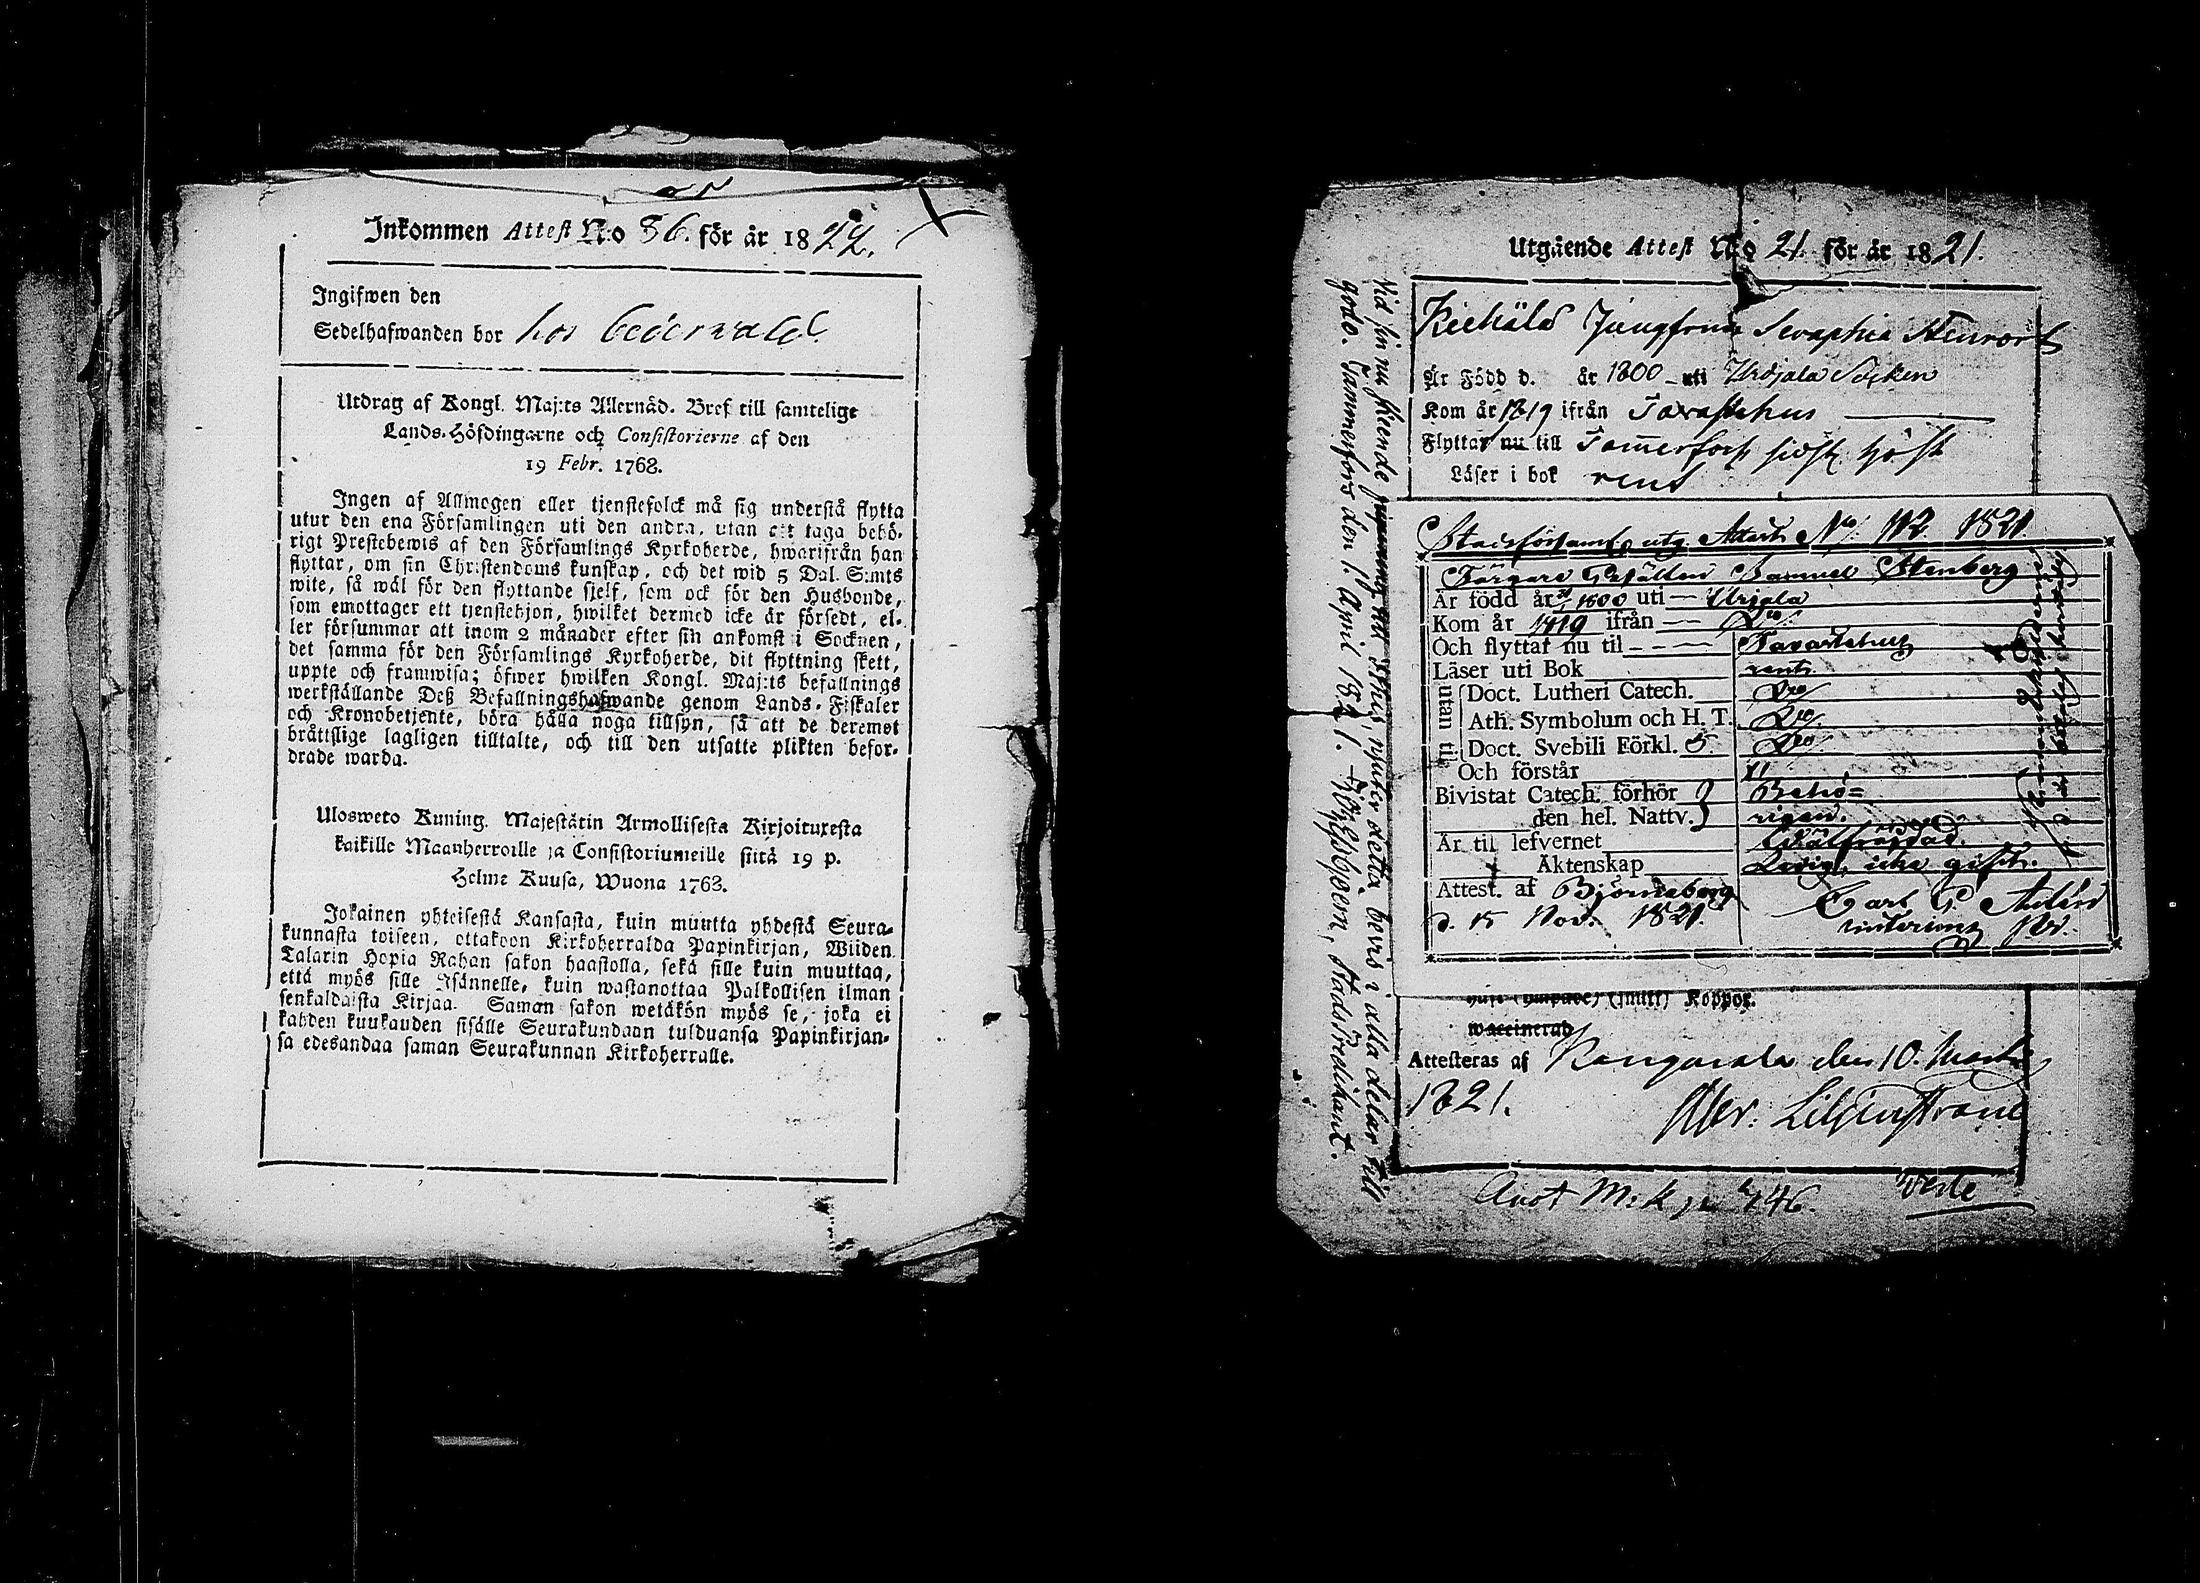 Inkommen Attest N:o 86. för år 1822.
Ingifwen den
Sedelhafwanden bor hos
Utdrag af Kongl. Maj:ts Allernåd. Bref till samtelige
Lands-Höfdingarne och Consistorierne af den
19 Febr. 1763.
Ingen af Allmogen eller tjenstefolck må sig understå flytta
utur den ena Församlingen uti den andra, utan att taga behö-
rigt Prestebewis af den Församlings Kyrkoherde, hwarifrån han
flyttar, om sin Christendoms kunskap, och det wid 5 Dal. S:mts
wite, så wäl för den flyttande sjelf, som ock för den Husbonde,
som emottager ett tjenstehjon, hwilket dermed icke är försedt, el-
ler försummar att inom 2 månader efter sin ankomst i Socknen,
det samma för den Församlings Kyrkoherde, dit flyttning skett,
uppte och framwisa; öfwer hwilken Kongl. Maj:ts befallnings
werkställande Deß Befallningshafwande genom Lands-Fiskaler
och Kronobetjente, böra hålla noga tillsyn, så att de deremot
bråttslige lagligen tilltalte, och till den utsatte plikten befor-
drade warda.
Ulosweto Kuning. Majestätin Armollisesta Kirjoituxesta
kaikille Maanherroille ja Consistoriumeille siitä 19 p.
Helme Kuusa, Wuona 1763.
Jokainen yhteisestä Kansasta, kuin muutta yhdestä Seura-
kunnasta toiseen, ottakoon Kirkoherralda Papinkirjan, Wiiden
Talarin Hopia Rahan sakon haastolla, sekä sille kuin muuttaa,
että myös sille Isännelle, kuin wastanottaa Palkollisen ilman
senkaldaista Kirjaa. Saman sakon wetäkön myös se, joka ei
kahden kuukauden sisälle Seurakundaan tulduansa Papinkirjan-
sa edesandaa saman Seurakunnan Kirkoherralle.
Utgående Attest N:o 21. för år 1821.
Jungfrun Seraphia
Är Född d. år 1800 uti Urdjala Socken
Kom år 1819 ifrån Tavasthus
Flyttar nu till
Läser i bok rent
Stadsförsaml. utg. Attest No 112. 1821.
Färgare Gesällen Samuel Stenberg
Är född år 1800 uti Urjala
Kom år 1819 ifrån Do
Och flyttar nu til Tavastehus
Läser uti Bok rent.
utan til
Doct. Lutheri Catech. Do
Ath. Symbolum och H. T. Do
Doct. Svebili Förkl. 5. Do
Och förstår
Bivistat Catech. förhör Behö-
den hel. Nattv. rigen.
Är til lefvernet Wälfräjdad.
Äktenskap Ledig, icke gift.
Attest. af Björneborg
d. 15 Nov. 1821.
Carl G.
Koppor.
waccinerad
Attesteras af Kangasala den 10. Martii
1821.
Aler. Liljenstrand
M.k.
Verte
godo. Tammerfors den 1. April 1821. stadsPredikant.